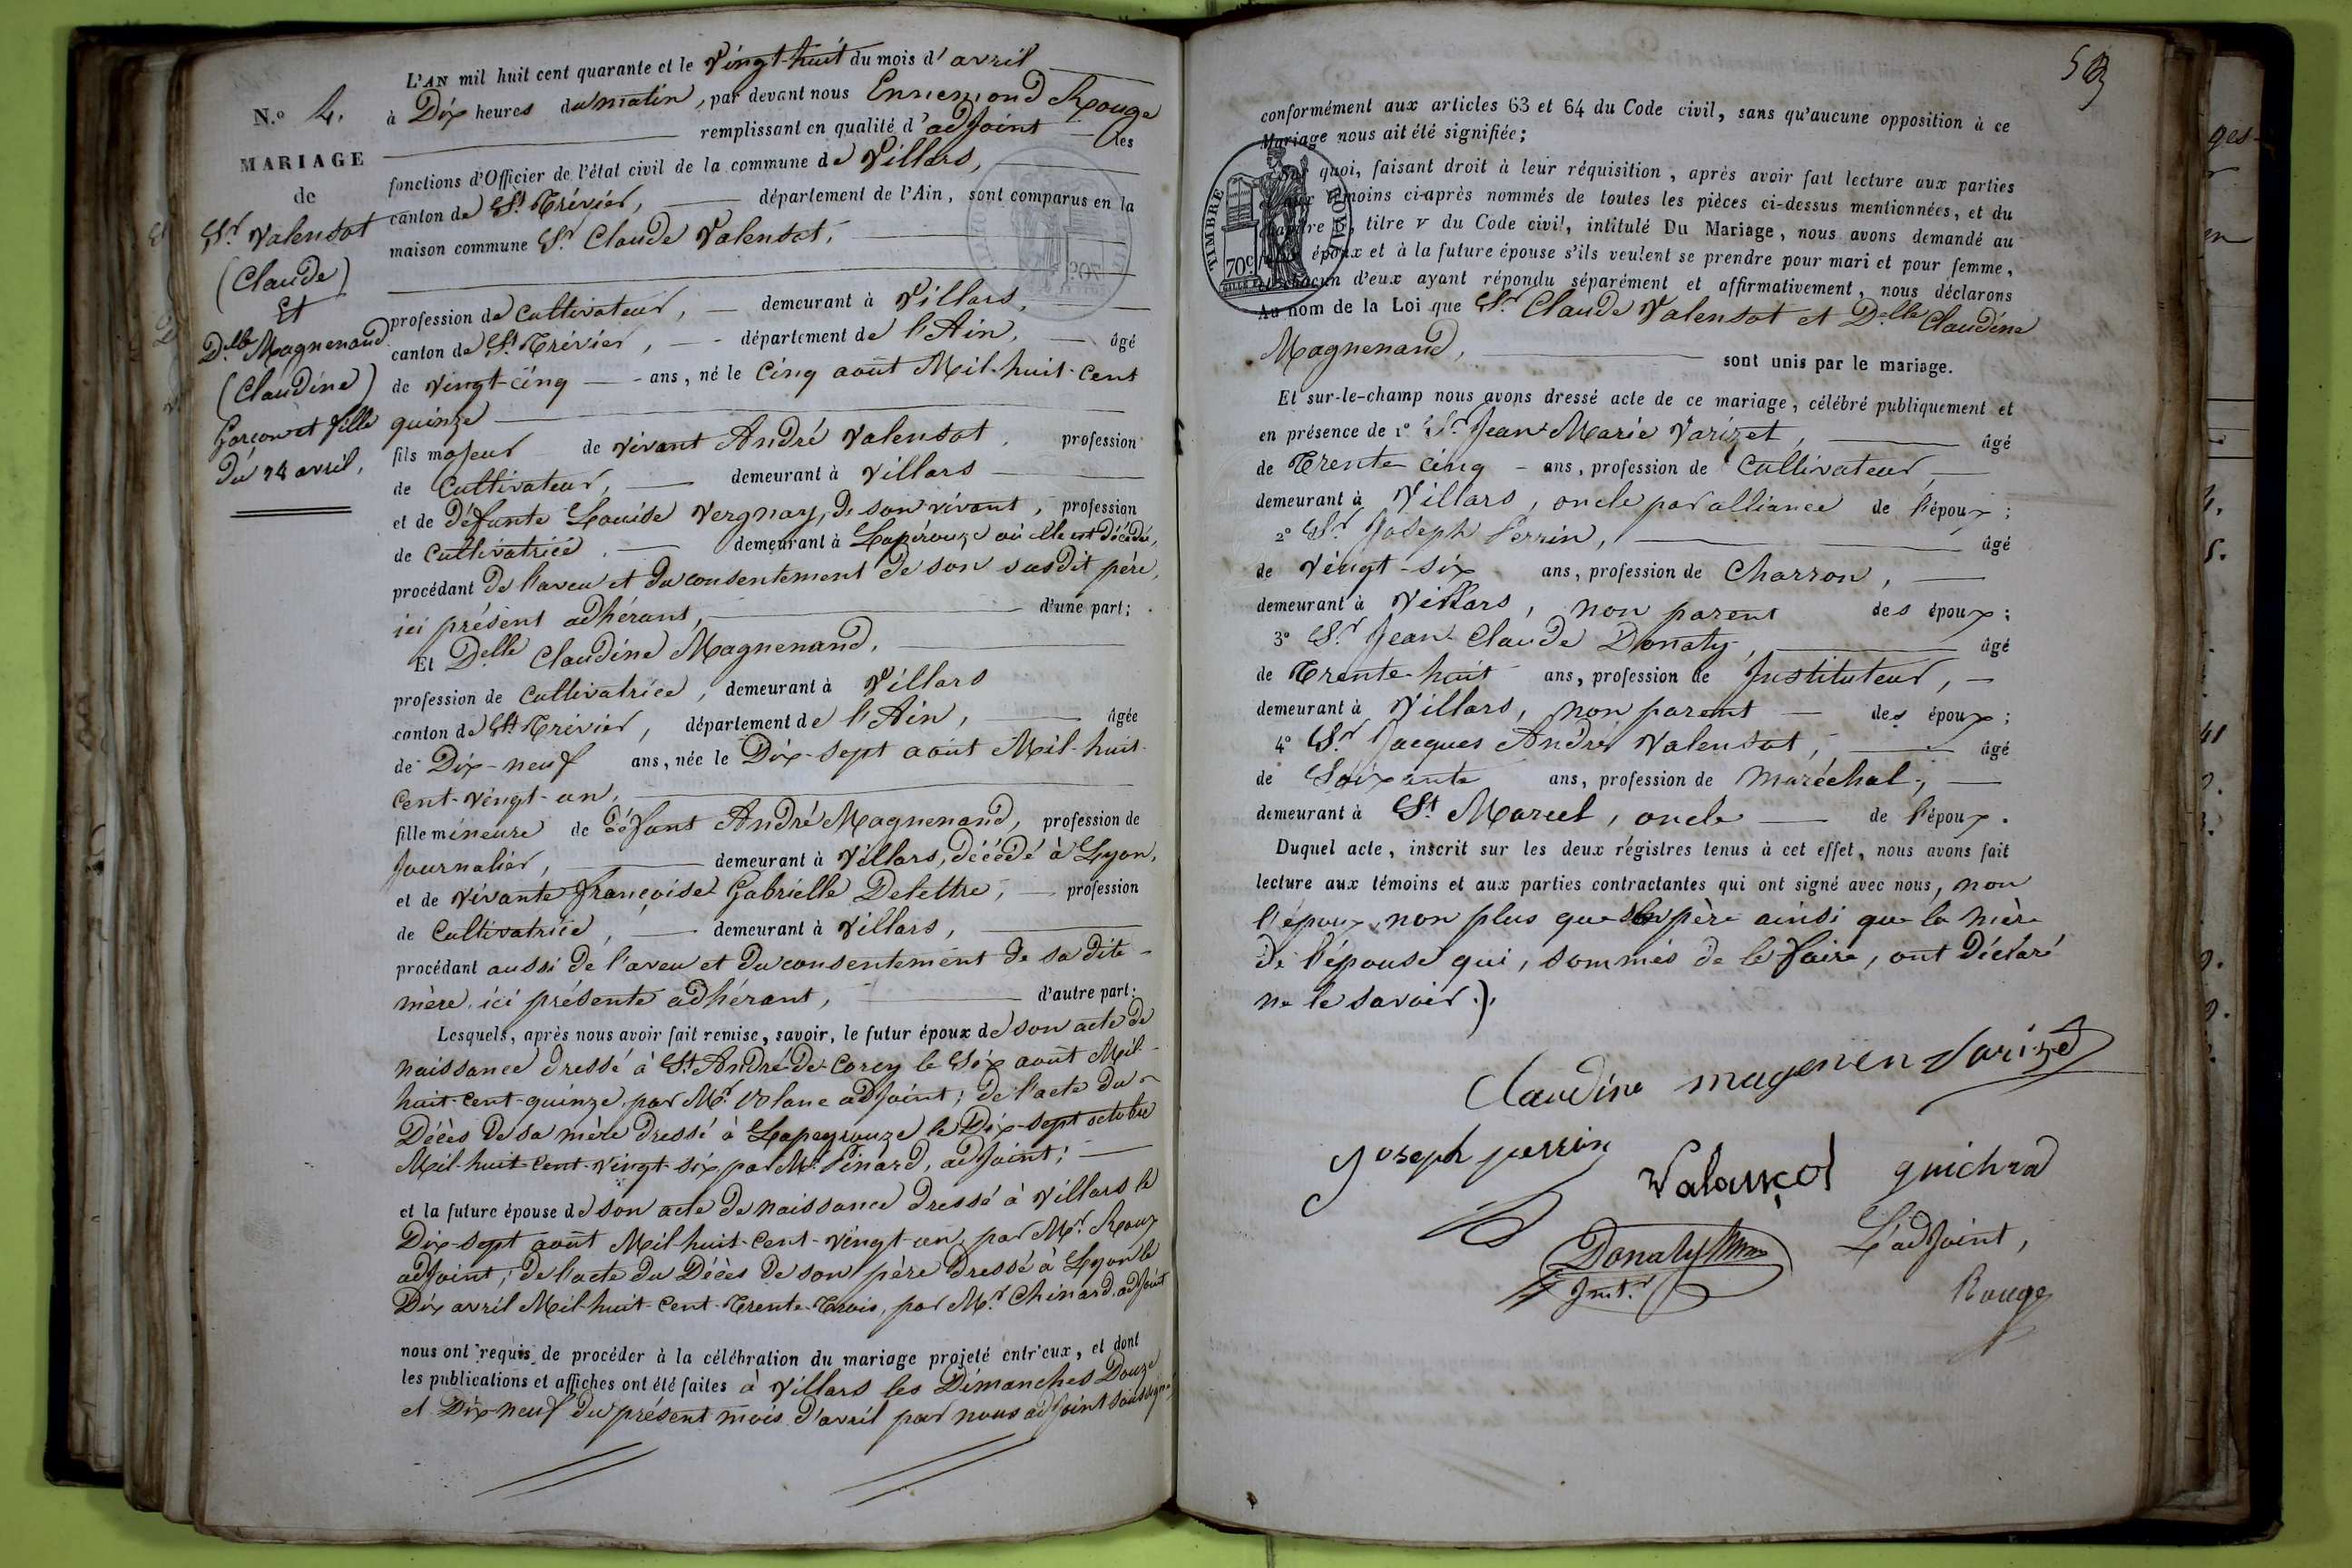 N.o 4.
MARIAGE
de
Sr. Valensot
(Claude)
Et
Delle Magnenand
(Claudine)
Garçon et fille
Du 28 avril,
L'AN mil huit cent quarante et le Vingt-huit du mois d'avril
à Dix heures du matin, par devant nous Ennemond Rouge
remplissant en qualité d'adjoint les
fonctions d'Officier de l'état civil de la commune de Villars,
canton de St. Trévier, département de l'Ain, sont comparus en la
maison commune Sr. Claude Valensot,
profession de Cultivateur, demeurant à Villars,
canton de St. Trévier, département de l'Ain, âgé
de vingt-cinq ans, né le Cinq août Mil-huit-cent
quinze
fils majeur de vivant André Valensot, profession
de Cultivateur, demeurant à Villars
et de défunte Louise Vergnay, de son vivant, profession
de Cultivatrice, demeurant à Lapérouze où elle est décédée,
procédant de l'aveu et du consentement de son susdit père,
ici présent adhérant, d'une part;
Et Delle Claudine Magnenand,
profession de Cultivatrice, demeurant à Villars
canton de St. Trévier, département de l'Ain, âgée
de Dix-neuf ans, née le Dix-sept août Mil-huit-
cent-vingt-un,
fille mineure de défunt André Magnenand, profession de
Journalier, demeurant à Villars, décédé à Lyon,
et de vivante Françoise Gabrielle Delettre, profession
de Cultivatrice, demeurant à Villars,
procédant aussi de l'aveu et du consentement de sa dite
mère ici présente adhérant, d'autre part:
Lesquels, après nous avoir fait remise, savoir, le futur époux de son acte de
naissance dressé à St. André-de-Corcy le Six août Mil-
huit-cent-quinze par Mr. adjoint; de l'acte du
Décès de sa mère dressé à Lapeyrouze le Dix-sept octobre
Mil-huit-cent-vingt-six par Mr. Pinard, adjoint;
et la future épouse de son acte de naissance dressé à Villars le
Dix-sept août Mil-huit-cent-vingt-un par Mr. Roux
adjoint; de l'acte du Décès de son père dressé à Lyon le
Dix avril Mil-huit-cent-Trente-Trois, par Mr. Chinard adjoint
nous ont requis de procéder à la célébration du mariage projeté entr'eux, et dont
les publications et affiches ont été faites à Villars les Dimanches Douze
et Dix-neuf du présent mois d'avril par nous adjoint soussigné,
conformément aux articles 63 et 64 du Code civil, sans qu'aucune opposition à ce
Mariage nous ait été signifiée;
TIMBRE ROYAL
70c
quoi, faisant droit à leur réquisition, après avoir fait lecture aux parties
témoins ci-après nommés de toutes les pièces ci-dessus mentionnées, et du
chapitre 6, titre v du Code civil, intitulé Du Mariage, nous avons demandé au
époux et à la future épouse s'ils veulent se prendre pour mari et pour femme,
chacun d'eux ayant répondu séparément et affirmativement, nous déclarons
Au nom de la Loi que Sr. Claude Valensot et Delle Claudine
Magnenand, sont unis par le mariage.
Et sur-le-champ nous avons dressé acte de ce mariage, célébré publiquement et
en présence de 1o Sr. Jean-Marie Varizet, âgé
de Trente-cinq ans, profession de Cultivateur
demeurant à Villars, oncle par alliance de l'époux;
2o Sr. Joseph Perrin, âgé
de vingt-six ans, profession de Charron,
demeurant à Villars, non parent des époux;
3o Sr. Jean-Claude Donaty, âgé
de Trente-huit ans, profession de Instituteur,
demeurant à Villars, non parent des époux;
4o Sr. Jacques André Valensot, âgé
de Soixante ans, profession de Maréchal,
demeurant à St. Marcel, oncle de l'époux.
Duquel acte, inscrit sur les deux régistres tenus à cet effet, nous avons fait
lecture aux témoins et aux parties contractantes qui ont signé avec nous, non
l'époux non plus que son père ainsi que la mère
de l'épouse qui, sommés de le faire, ont déclaré
ne le savoir.
Claudine magnen Varized
Joseph perrin
Valançot guichrd
Donaty
Inst.r
L'adjoint,
Rouge